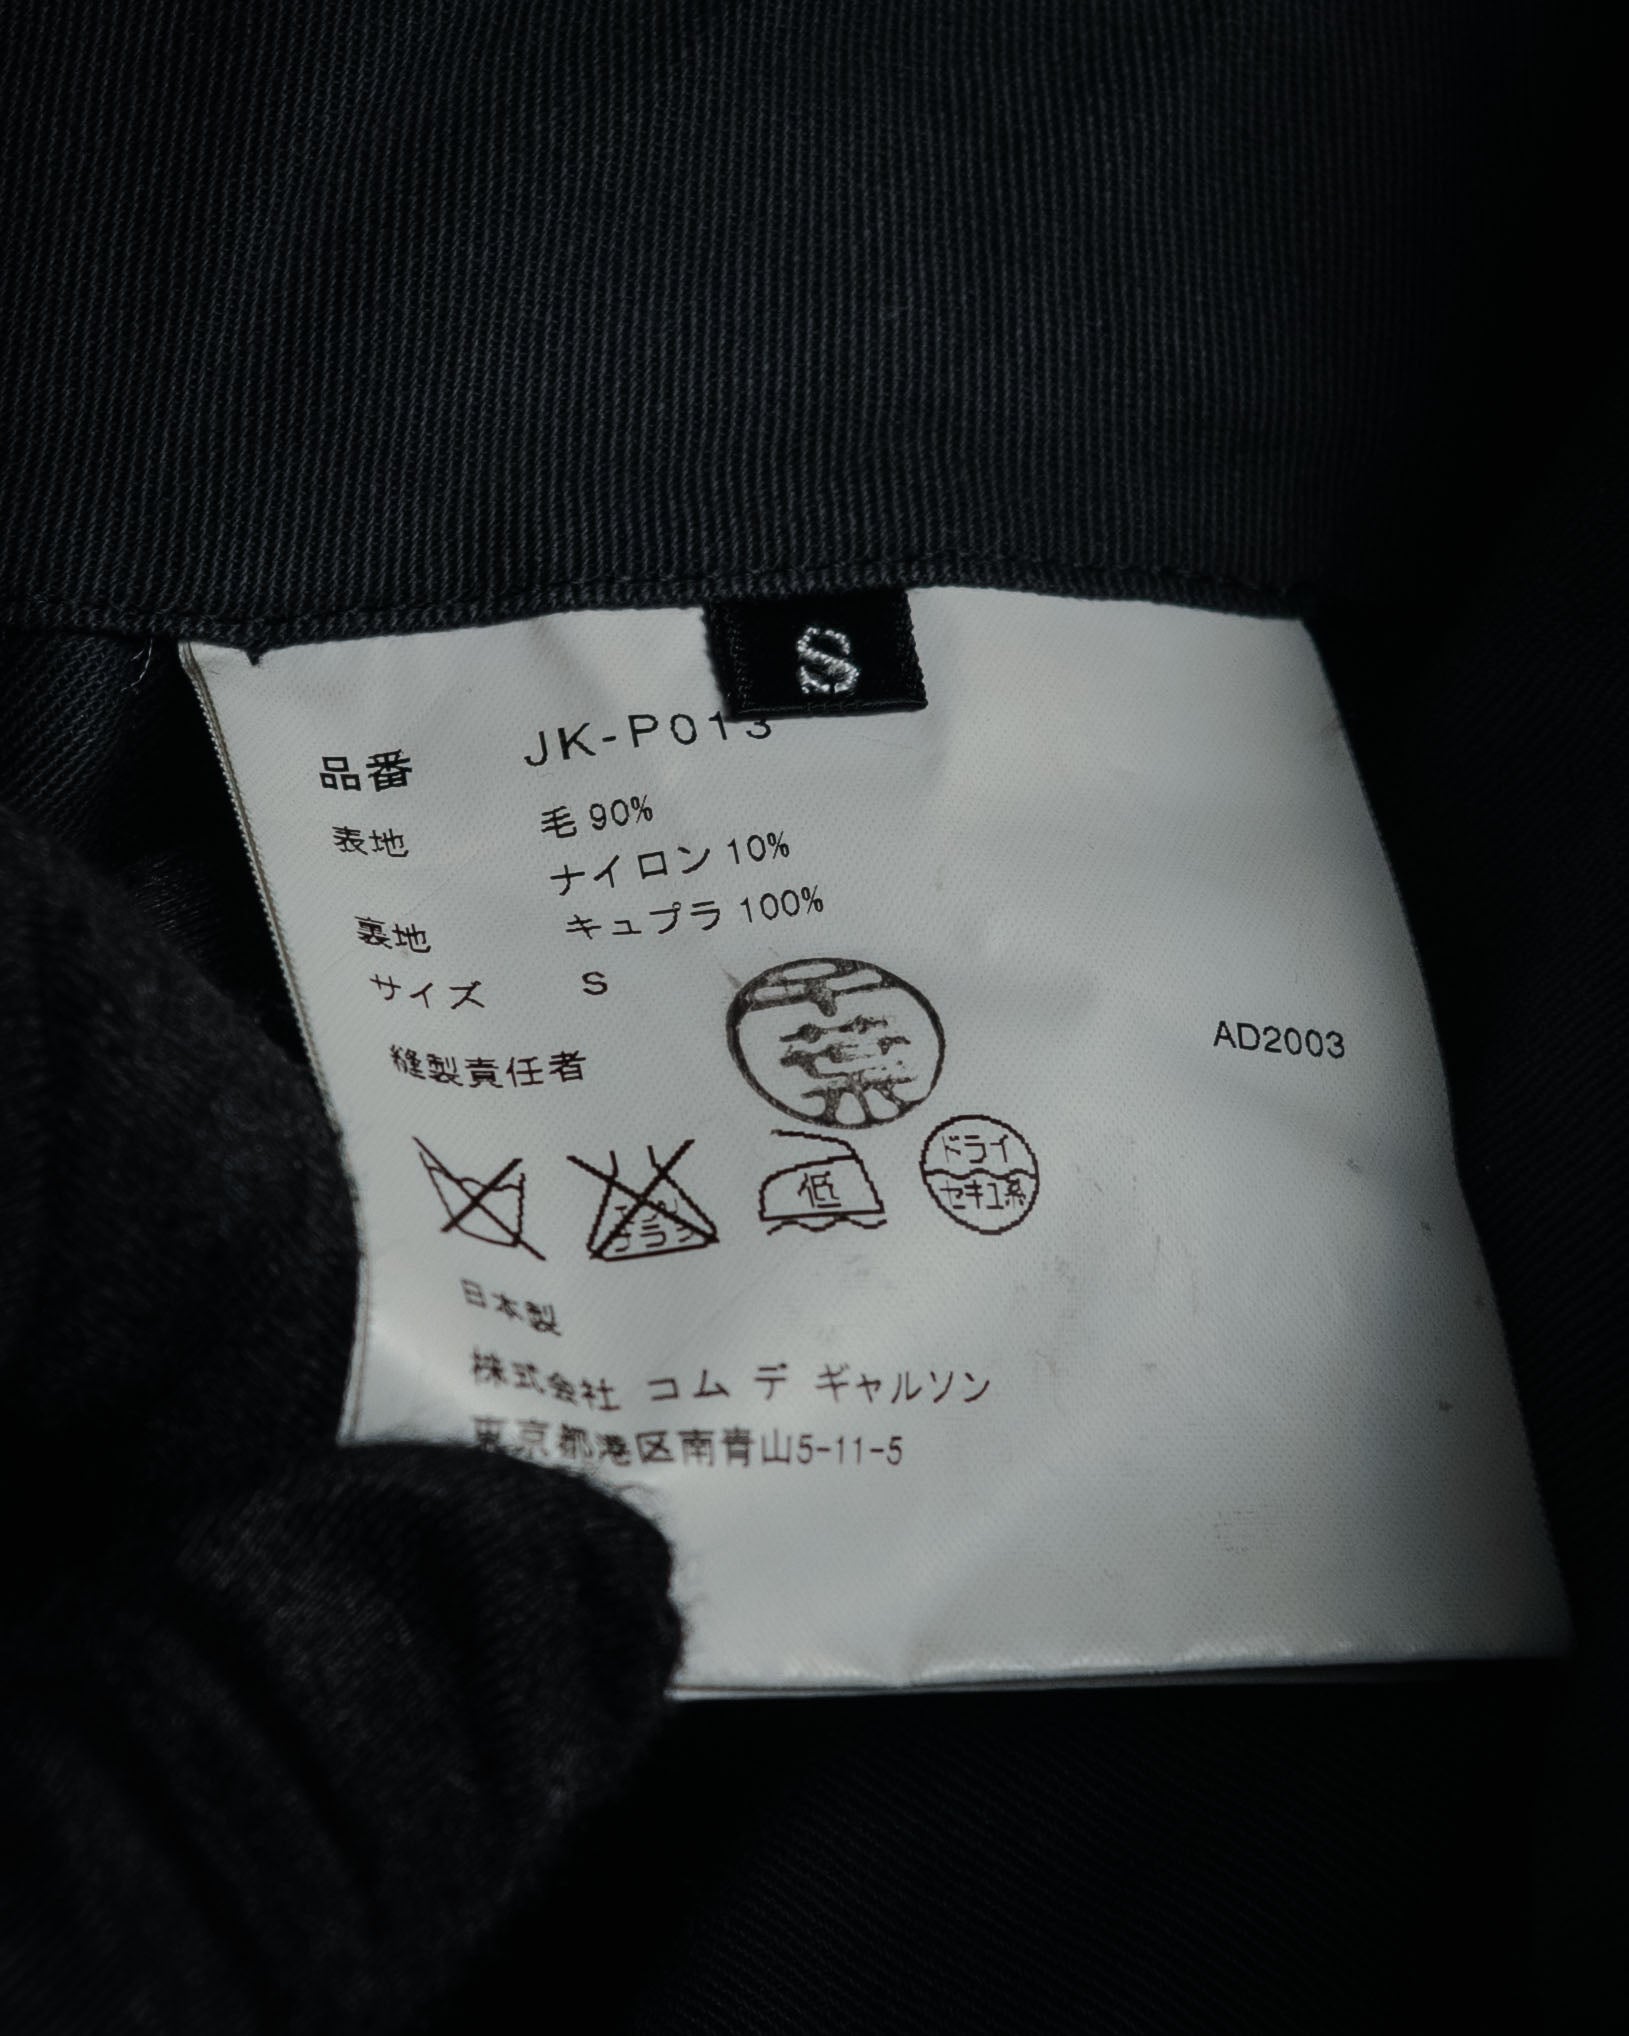 S
品番 JK-P013
表地 毛 90%
ナイロン 10%
裏地 キュプラ 100%
サイズ S
縫製責任者
AD2003
低
ドライ
セキユ系
日本製
株式会社 コム デ ギャルソン
東京都港区南青山5-11-5